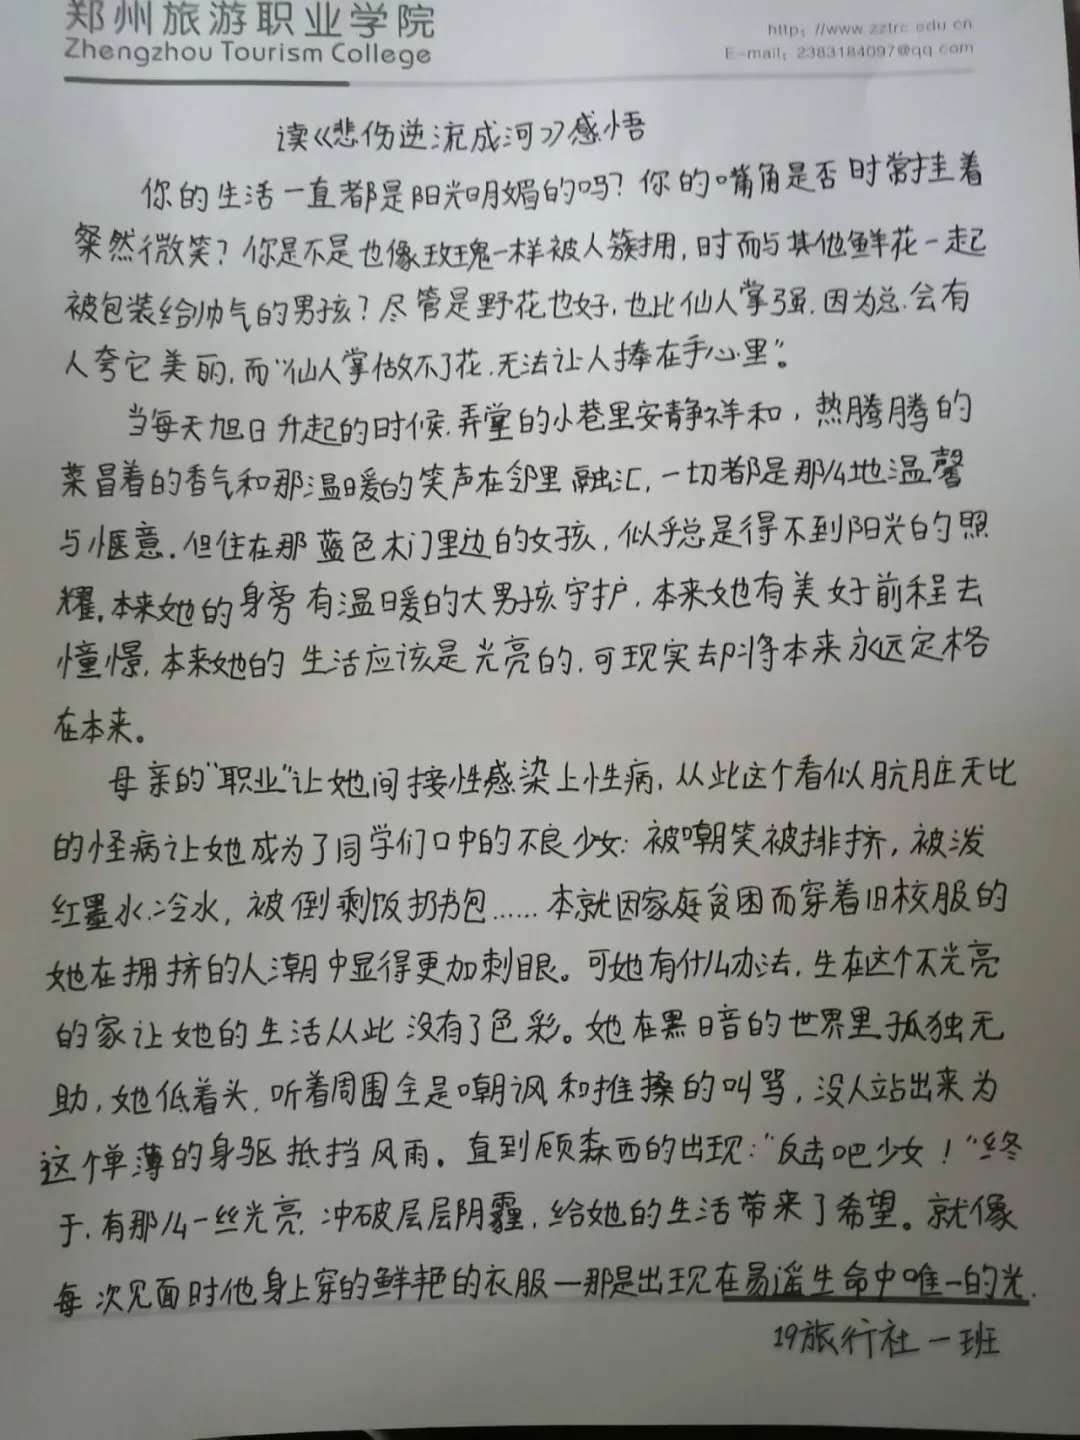 郑州旅游职业学院
Zhengzhou Tourism College
http://www.zztrc.edu.cn
E-mail: 2383184097@qq.com
读《悲伤逆流成河》感悟
你的生活一直都是阳光明媚的吗？你的嘴角是否时常挂着
粲然微笑？你是不是也像玫瑰一样被人簇拥，时而与其他鲜花一起
被包装给帅气的男孩？尽管是野花也好，也比仙人掌强，因为总会有
人夸它美丽，而“仙人掌做不了花，无法让人捧在手心里”。
当每天旭日升起的时候，弄堂的小巷里安静祥和，热腾腾的
菜冒着的香气和那温暖的笑声在邻里融汇，一切都是那么地温馨
与惬意。但住在那蓝色木门里边的女孩，似乎总是得不到阳光的照
耀。本来她的身旁有温暖的大男孩守护，本来她有美好前程去
憧憬，本来她的生活应该是光亮的，可现实却将本来永远定格
在本来。
母亲的“职业”让她间接性感染上性病，从此这个看似肮脏无比
的怪病让她成为了同学们口中的不良少女：被嘲笑被排挤，被泼
红墨水冷水，被倒剩饭扔书包……本就因家庭贫困而穿着旧校服的
她在拥挤的人潮中显得更加刺眼。可她有什么办法，生在这个不光亮
的家让她的生活从此没有了色彩。她在黑暗的世界里孤独无
助，她低着头，听着周围全是嘲讽和推搡的叫骂，没人站出来为
这个单薄的身躯抵挡风雨。直到顾森西的出现：“反击吧少女！”终
于，有那么一丝光亮，冲破层层阴霾，给她的生活带来了希望。就像
每次见面时他身上穿的鲜艳的衣服—那是出现在易遥生命中唯一的光.
19旅行社一班